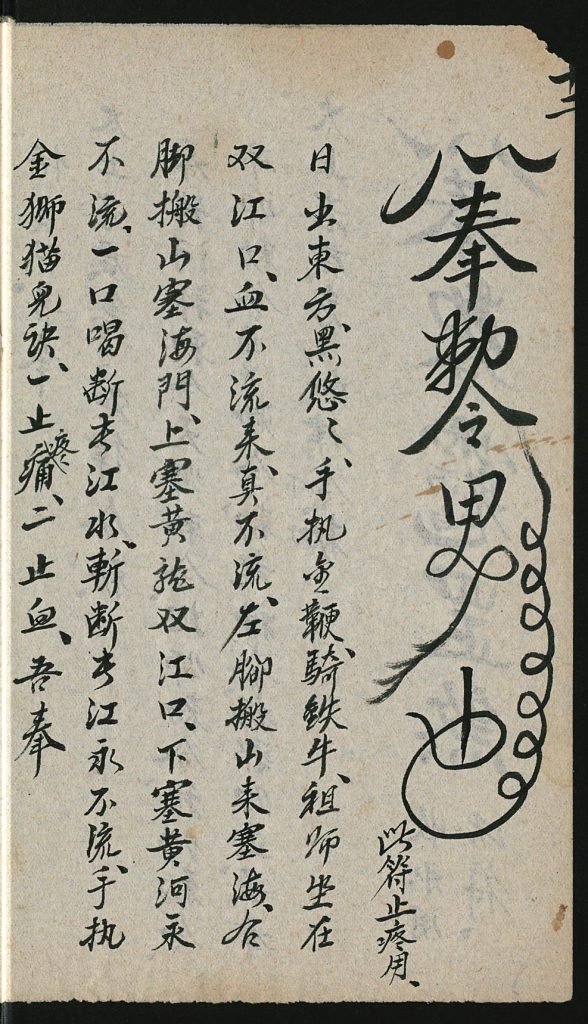 十三
奉勅令
此符止疼用、
日出東方黑悠々、手执金鞭、騎鉄牛、祖师坐在
双江口、血不流来、真不流、左腳搬山来塞海、右
脚搬山塞海門、上塞黄龍双江口、下塞黄河永
不流、一口喝断长江水、斬断长江永不流、手执
金狮猫児诀、一止痛疼、二止血、吾奉